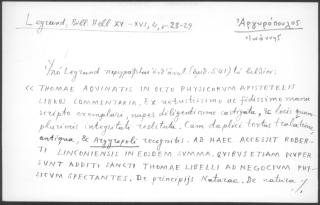 Legrand, Bibl. Hell XV-XVI, 4, σ. 28-29
Ἀργυρόπουλος
Ἰωάννης
Legrand περιγράφει (ἀριθ. 541)
« THOMAE AQUINATIS IN OCTO PHYSICORUM ARISTOTELIS
LIBROS COMMENTARIA, Ex vetustissimo ac fidissimo manu
scripto exemplari, nuper diligentissime castigata, & locis quam
plurimis integritate restituta. Cum duplici textus tralatione,
antiqua, & Argyropoli recognitis. AD HAEC ACCESSIT ROBER-
TI LINCONIENSIS IN EOSDEM SUMMA, QUIBUS ETIAM NUPER
SUNT ADDITI SANCTI THOMAE LIBELLI AD NEGOCIUM PHY-
SICUM SPECTANTES. De principijs Naturae. De natura ./.